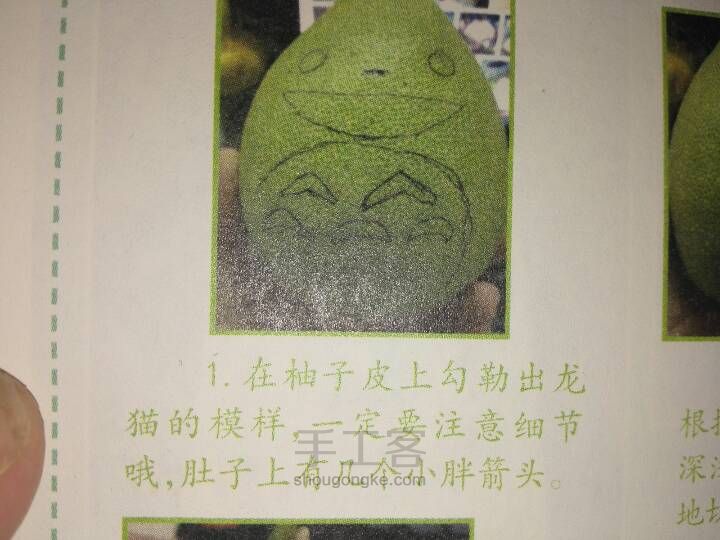 1. 在柚子皮上勾勒出龙
猫的模样,一定要注意细节
哦,肚子上有几个小胖箭头。
手工客
shougongke.com
根据
深浅
地切